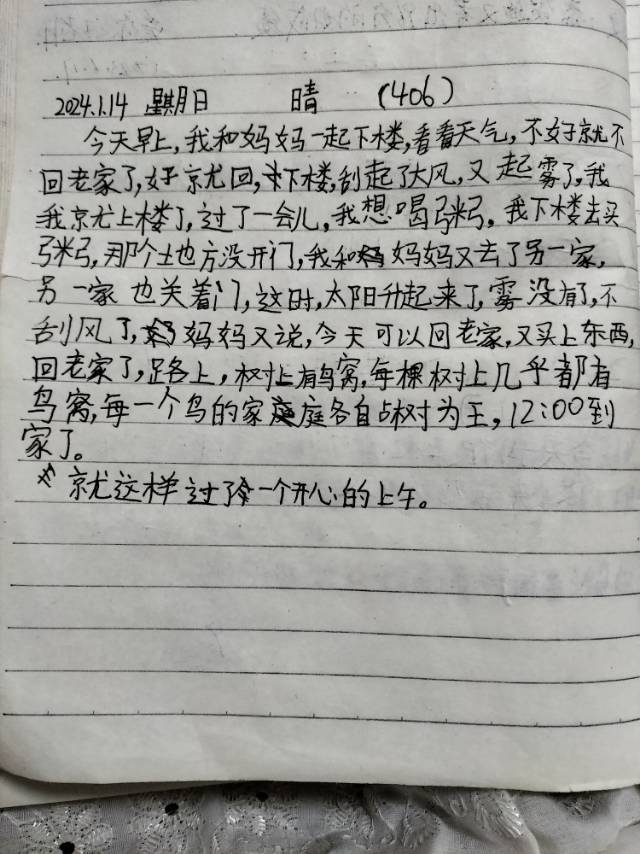 2024.1.14 星期日 晴 (406)
今天早上,我和妈妈一起下楼,看看天气,不好就不
回老家了,好就回,下楼,刮起了大风,又起雾了,我
我就上楼了,过了一会儿,我想喝粥,我下楼去买
粥,那个地方没开门,我和妈妈又去了另一家,
另一家也关着门,这时,太阳升起来了,雾没有了,不
刮风了,妈妈又说,今天可以回老家,又买上东西,
回老家了,路上,树上有鸟窝,每棵树上几乎都有
鸟窝,每一个鸟的家庭各自占树为王,12:00到
家了。
就这样过了一个开心的上午。